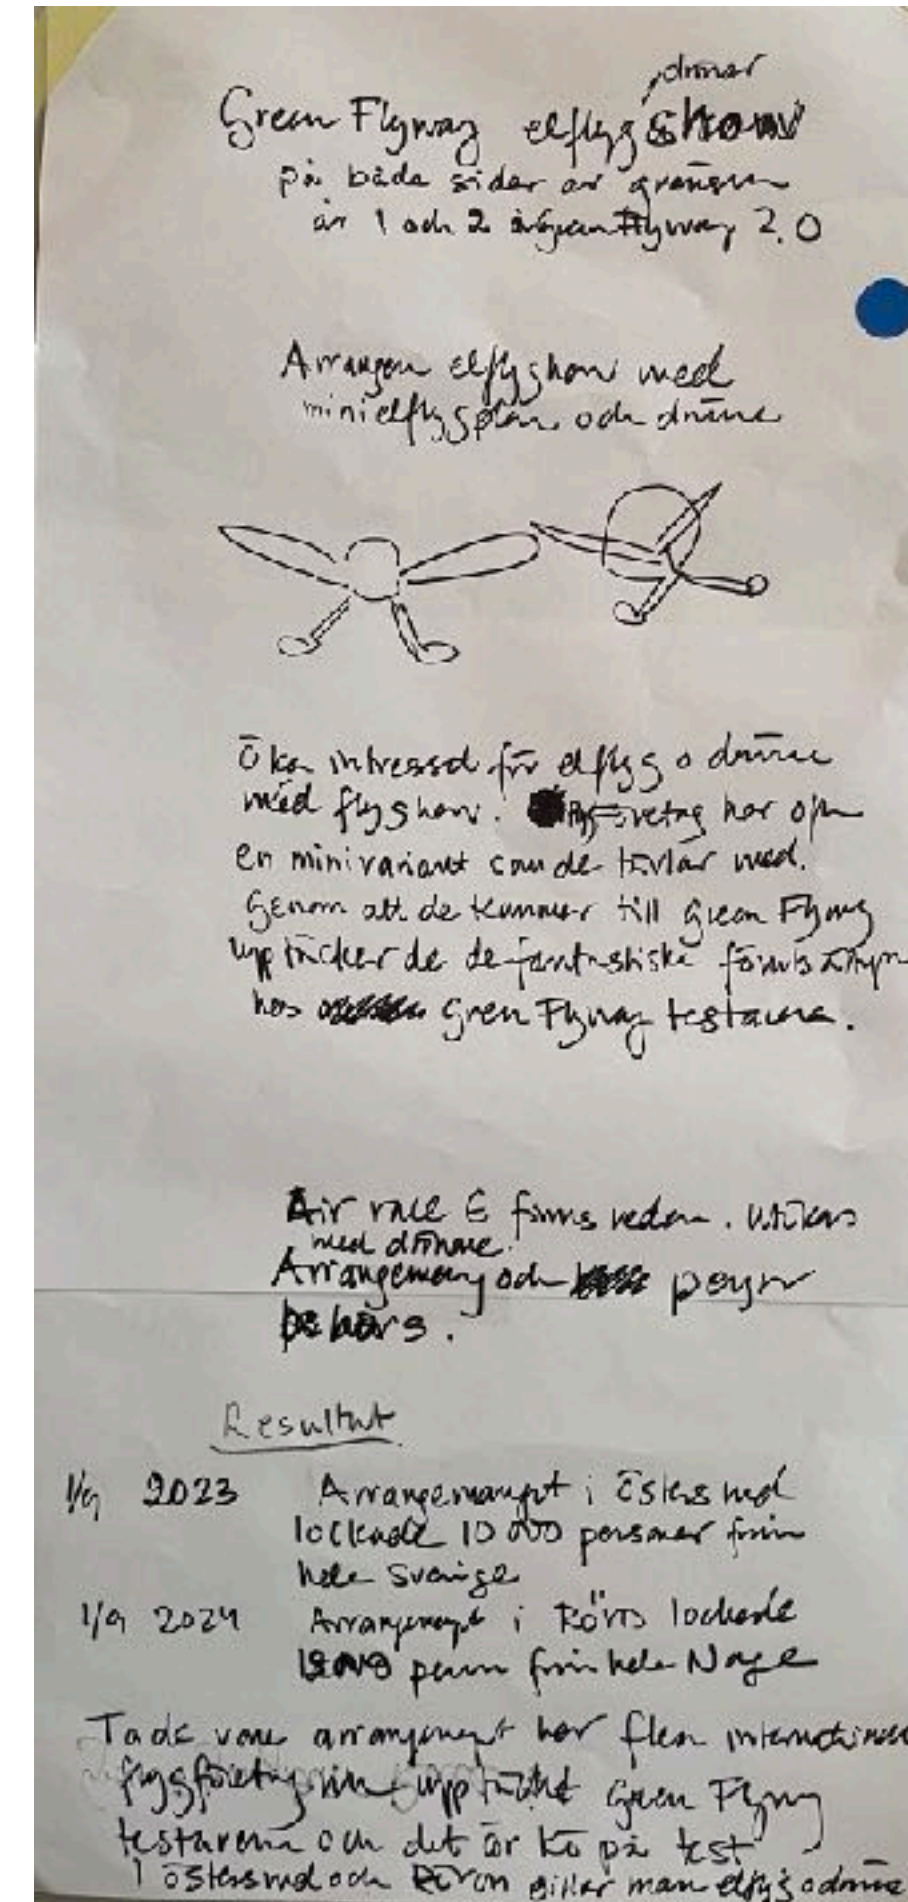 , drönar
Green Flyway elflygshow
på båda sidor av gränsen
år 1 och 2 Green Flyway 2.0
Arrangera elflygshow med
minielflygplan och drönare
Öka intresset för elflyg o drönare
med flygshow. Flygföretag har ofta
en minivariant som de tävlar med.
Genom att de kommer till Green Flyway
upptäcker de de fantastiska
hos Green Flyway testarena.
Air race E finns redan. Utökas
med drönare.
Arrangemang och pengar
behövs.
Resultat
1/9 2023 Arrangemanget i Östersund
lockade 10 000 personer från
hela Sverige
1/9 2024 Arrangemanget i Röros lockade
från hela Norge
Tack vare arrangemanget har flera internationella
flygföretag upptäckt Green Flyway
testarena och det är kö på test
I Östersund och Röros gillar man elflyg o drönare